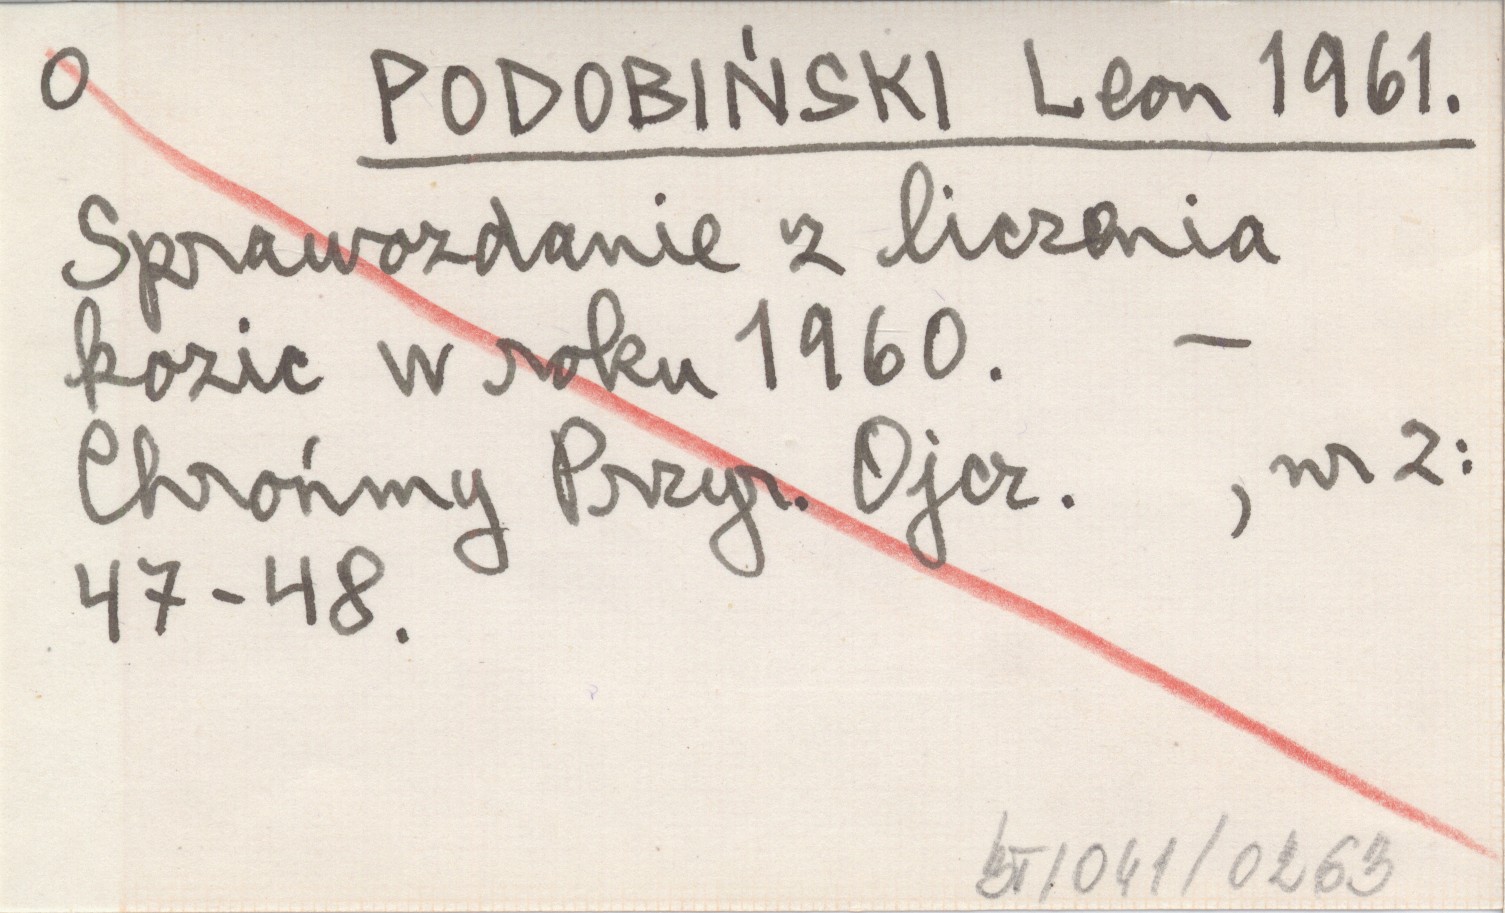 O PODOBIŃSKI Leon 1961.
Sprawozdanie z liczenia
kozic w roku 1960. —
Chrońmy Przyr. Ojcz. , nr 2:
47-48.
/041/0263